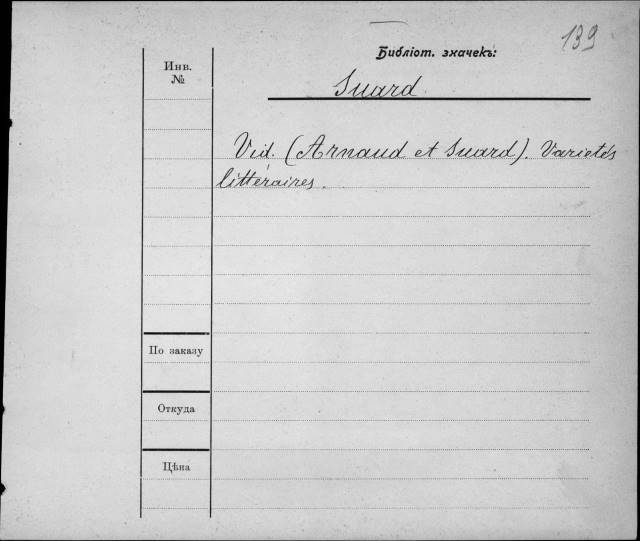 139
Библіот. значекъ:
Инв.
№
Suard
Vid. (Arnaud et Suard). Varietés
littéraires.
По заказу
Откуда
Цѣна